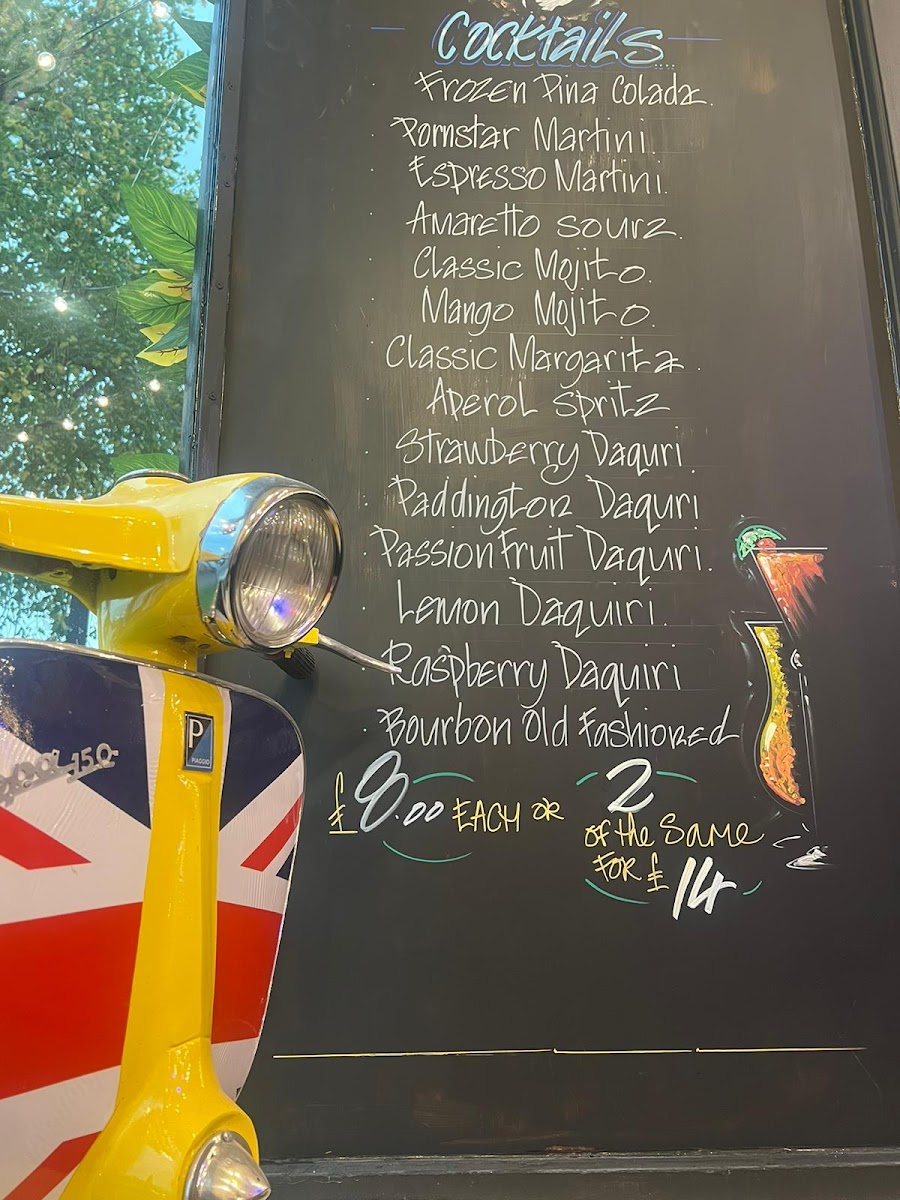 Cocktails....
Frozen Pina Colada.
Pornstar Martini.
Espresso Martini.
Amaretto sourz.
Classic Mojito.
Mango Mojito.
Classic Margarita.
Aperol Spritz
Strawberry Daquri.
Paddington Daquri
Passion Fruit Daquri.
Lemon Daquiri.
Raspberry Daquiri
Bourbon Old Fashioned
£8.00 EACH OR
2
of the Same
FOR £14
P
PIAGGIO
150